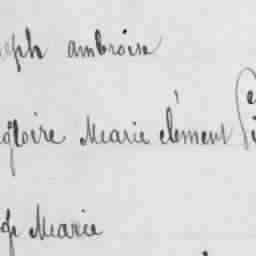 eph ambroise
gloire Marie clément
Marie